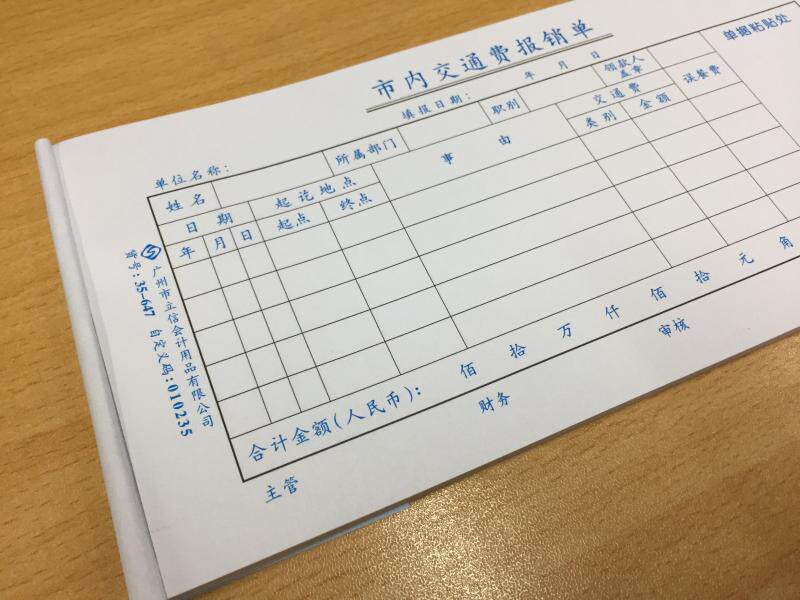 市内交通费报销单
填报日期: 年 月 日
单位名称:
姓名 所属部门 职别 领款人盖章
日期 起讫地点 事由 交通费 误餐费 单据粘贴处
年 月 日 起点 终点 类别 金额
合计金额(人民币): 佰 拾 万 仟 佰 拾 元 角
主管 财务 审核
广州市立信会计用品有限公司
货号:35-647 自定义码:010235